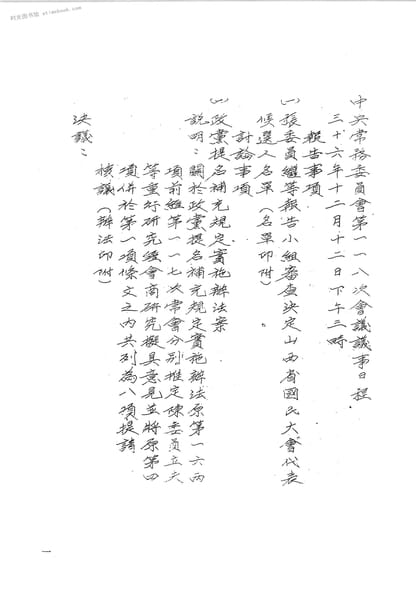 时光图书馆 etimebook.com
中央常務委員會第一一八次會議議事日程
三十六年十二月十二日下午三時
報告事項
(一)張委員繼等報告小組審查決定山西省國民大會代表
候選人名單(名單印附)
討論事項
(一)政黨提名補充規定實施辦法案
說明:關於政黨提名補充規定實施辦法原第一六兩
項前經第一一七次常會分別推定陳委員立夫
等重行研究經會商研究擬具意見並將原第四
項併於第一項條文之內共列為八項提請
核議(辦法印附)
決議:
一